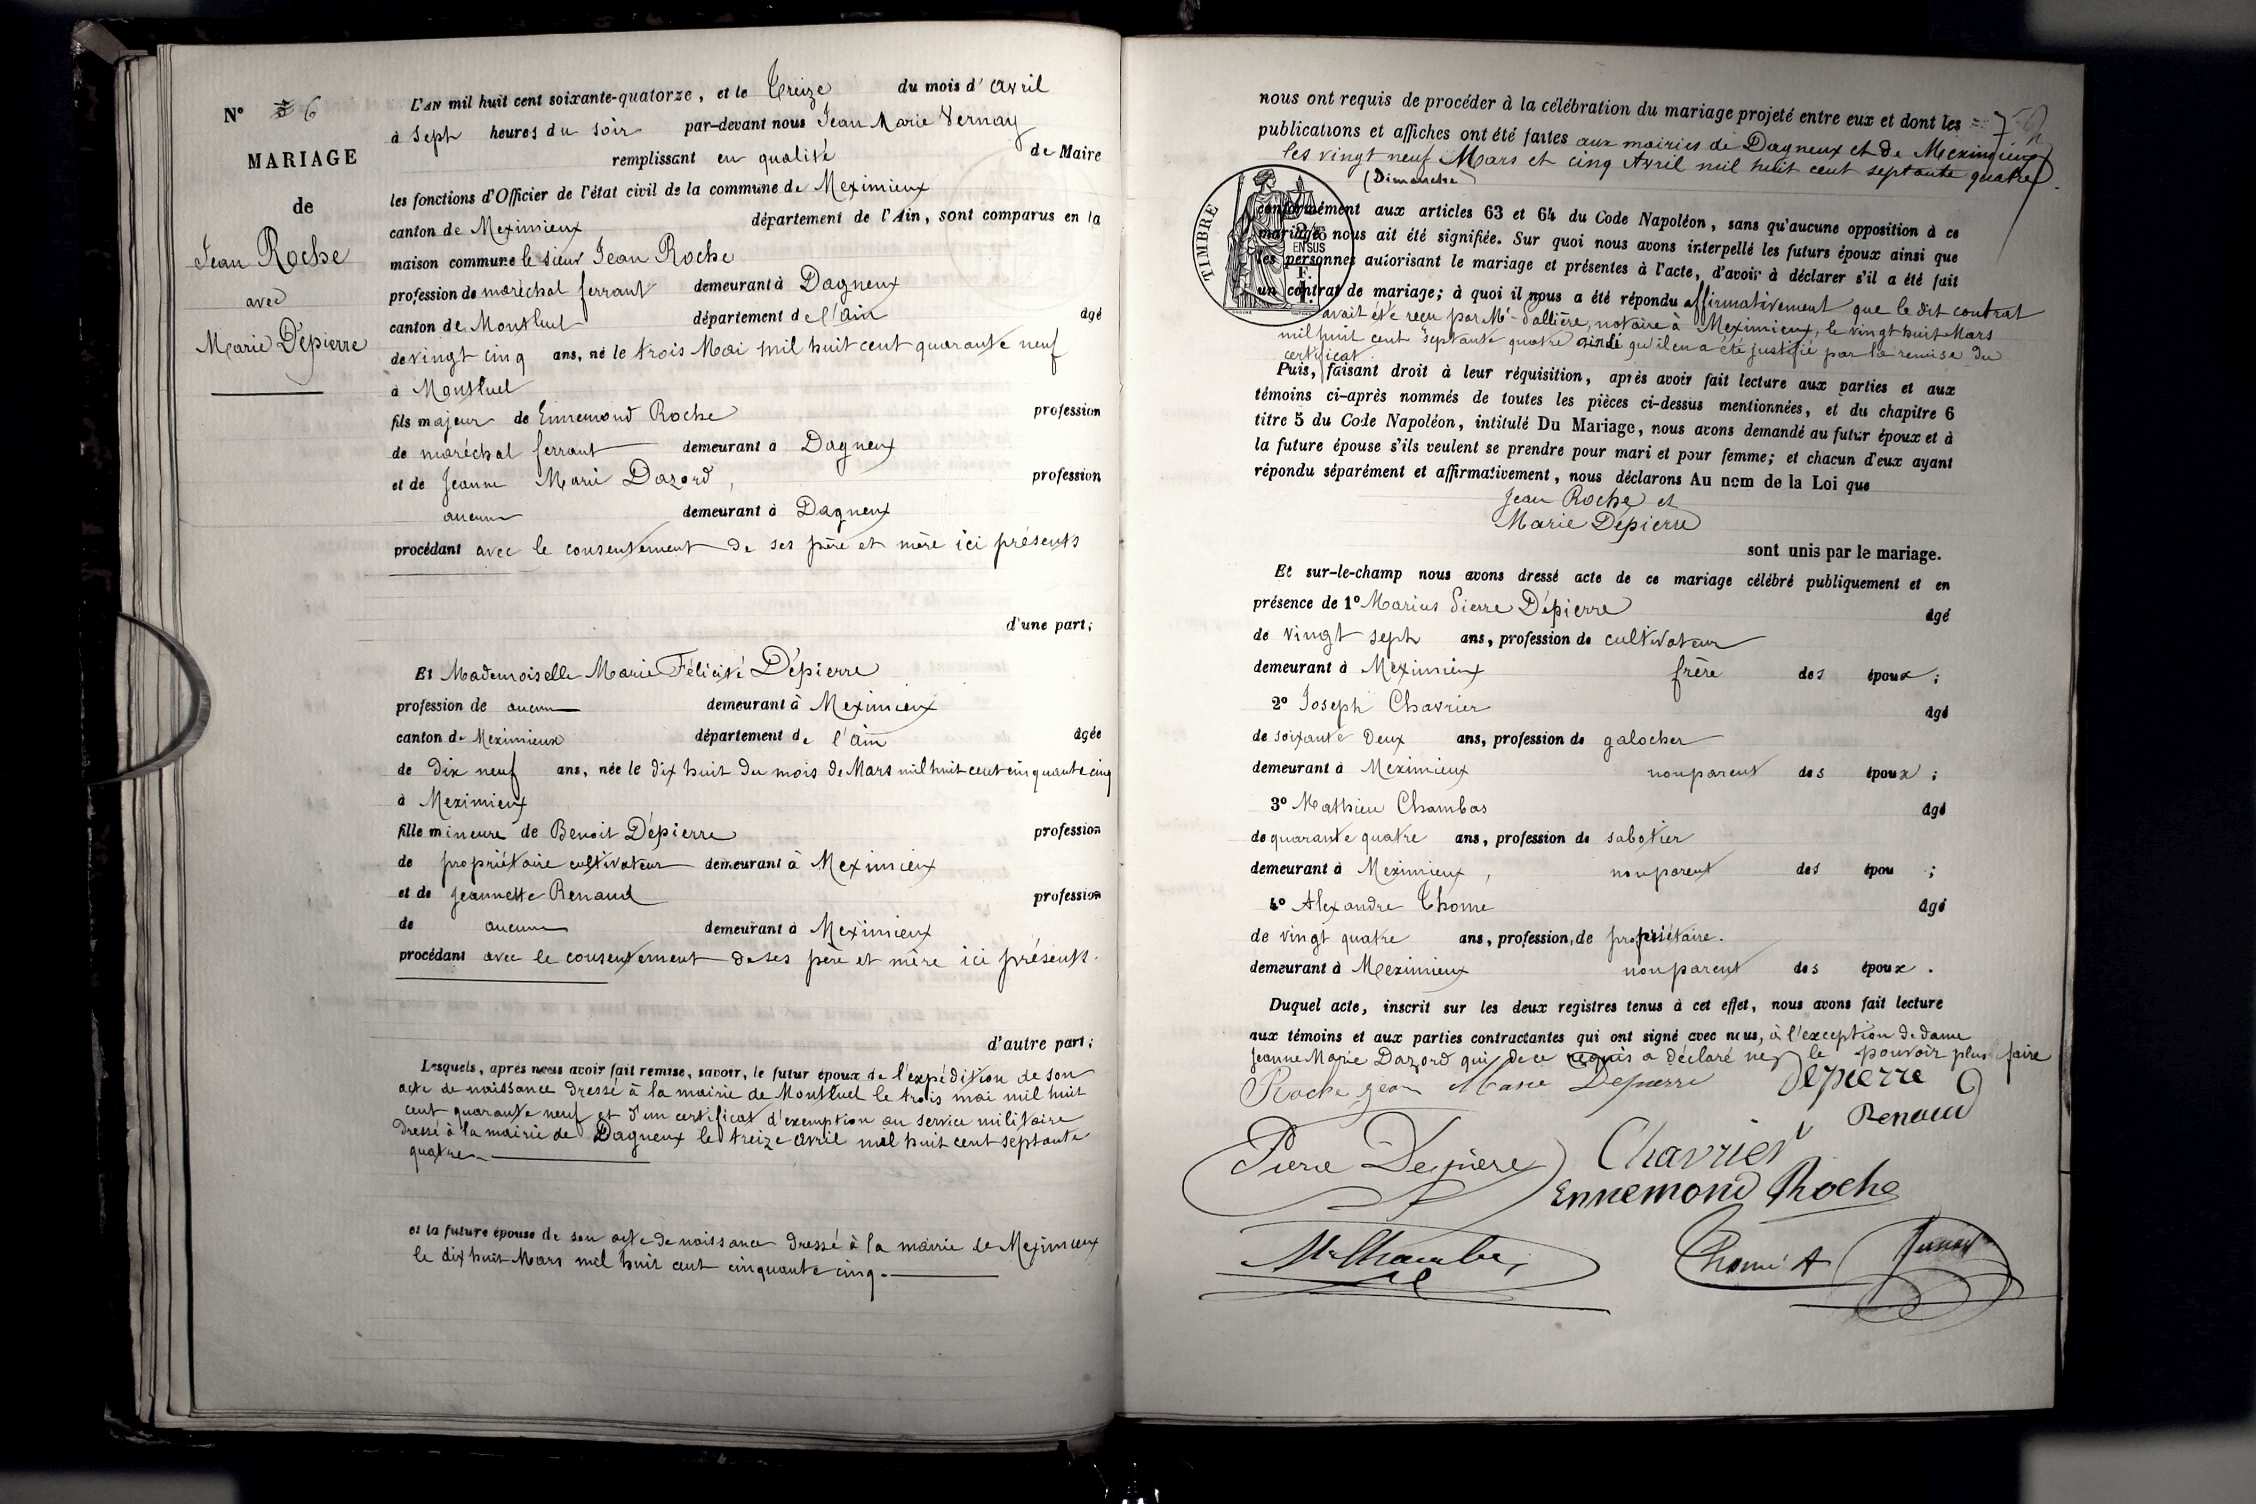 N° 6
MARIAGE
de
Jean Roche
avec
Marie Dépierre
L'AN mil huit cent soixante-quatorze, et le treize du mois d'avril
à sept heures du soir par-devant nous Jean Marie Vernay
remplissant en qualité de Maire
les fonctions d'Officier de l'état civil de la commune de Meximieux
canton de Meximieux département de l'Ain, sont comparus en la
maison commune le sieur Jean Roche
profession de maréchal ferrant demeurant à Dagneux
canton de Montluel département de l'ain âgé
de vingt cinq ans, né le trois Mai mil huit cent quarante neuf
à Montluel
fils majeur de Ennemond Roche profession
de maréchal ferrant demeurant à Dagneux
et de Jeanne Marie Dazord, profession
aucune demeurant à Dagneux
procédant avec le consentement de ses père et mère ici présents
d'une part;
Et Mademoiselle Marie Félicité Dépierre
profession de aucune demeurant à Meximieux
canton de Meximieux département de l'ain âgée
de dix neuf ans, née le dix huit du mois de Mars mil huit cent cinquante cinq
à Meximieux
fille mineure de Benoit Dépierre profession
de propriétaire cultivateur demeurant à Meximieux
et de Jeannette Renaud profession
de aucune demeurant à Meximieux
procédant avec le consentement de ses père et mère ici présents.
d'autre part;
Lesquels, après nous avoir fait remise, savoir, le futur époux de l'expédition de son
acte de naissance dressé à la mairie de Montluel le trois mai mil huit
cent quarante neuf et d'un certificat d'exemption au service militaire
dressé à la mairie de Dagneux le treize avril mil huit cent septante
quatre.
et la future épouse de son acte de naissance dressé à la mairie de Meximieux
le dix huit Mars mil huit cent cinquante cinq.
nous ont requis de procéder à la célébration du mariage projeté entre eux et dont les
publications et affiches ont été faites aux mairies de Dagneux et de Meximieux
les vingt neuf Mars et cinq Avril mil huit cent septante quatre.
(Dimanche)
TIMBRE
2/10
EN SUS
conformément aux articles 63 et 64 du Code Napoléon, sans qu'aucune opposition à ce
mariage nous ait été signifiée. Sur quoi nous avons interpellé les futurs époux ainsi que
les personnes autorisant le mariage et présentes à l'acte, d'avoir à déclarer s'il a été fait
un contrat de mariage; à quoi il nous a été répondu affirmativement que le dit contrat
avait été reçu par Me notaire à Meximieux, le vingt huit Mars
mil huit cent septante quatre ainsi qu'il en a été justifié par la remise du
certificat.
Puis, faisant droit à leur réquisition, après avoir fait lecture aux parties et aux
témoins ci-après nommés de toutes les pièces ci-dessus mentionnées, et du chapitre 6
titre 5 du Code Napoléon, intitulé Du Mariage, nous avons demandé au futur époux et à
la future épouse s'ils veulent se prendre pour mari et pour femme; et chacun d'eux ayant
répondu séparément et affirmativement, nous déclarons Au nom de la Loi que
Jean Roche et
Marie Dépierre
sont unis par le mariage.
Et sur-le-champ nous avons dressé acte de ce mariage célébré publiquement et en
présence de 1° Marius Pierre Dépierre âgé
de vingt sept ans, profession de cultivateur
demeurant à Meximieux frère des époux;
2° Joseph Chavrier âgé
de soixante deux ans, profession de galocher
demeurant à Meximieux non parent des époux;
3° Mathieu Chambas âgé
de quarante quatre ans, profession de sabotier
demeurant à Meximieux, non parent des épou;
4° Alexandre Thome âgé
de vingt quatre ans, profession, de propriétaire.
demeurant à Meximieux non parent des époux.
Duquel acte, inscrit sur les deux registres tenus à cet effet, nous avons fait lecture
aux témoins et aux parties contractantes qui ont signé avec nous, à l'exception de dame
Jeanne Marie Dazord qui de ce requis a déclaré ne le pouvoir plus faire
Roche jean Marie Depierre Depierre
Renaud
Pierre Depiere Chavrier
Ennemond Roche
Thomé A